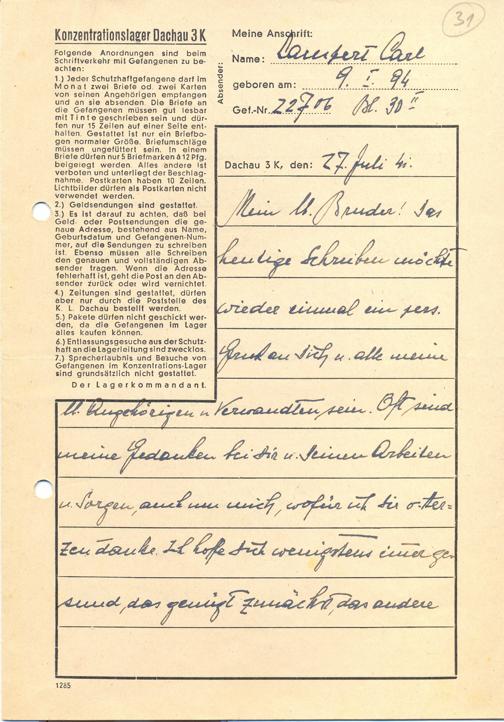 31
Konzentrationslager Dachau 3 K
Folgende Anordnungen sind beim
Schriftverkehr mit Gefangenen zu be-
achten:
1.) Jeder Schutzhaftgefangene darf im
Monat zwei Briefe od. zwei Karten
von seinen Angehörigen empfangen
und an sie absenden. Die Briefe an
die Gefangenen müssen gut lesbar
mit Tinte geschrieben sein und dür-
fen nur 15 Zeilen auf einer Seite ent-
halten. Gestattet ist nur ein Briefbo-
gen normaler Größe. Briefumschläge
müssen ungefüttert sein. In einem
Briefe dürfen nur 5 Briefmarken à 12 Pfg.
beigelegt werden. Alles andere ist
verboten und unterliegt der Beschlag-
nahme. Postkarten haben 10 Zeilen.
Lichtbilder dürfen als Postkarten nicht
verwendet werden.
2.) Geldsendungen sind gestattet.
3.) Es ist darauf zu achten, daß bei
Geld- oder Postsendungen die ge-
naue Adresse, bestehend aus Name,
Geburtsdatum und Gefangenen-Num-
mer, auf die Sendungen zu schreiben
ist. Ebenso müssen alle Schreiben
den genauen und vollständigen Ab-
sender tragen. Wenn die Adresse
fehlerhaft ist, geht die Post an den Ab-
sender zurück oder wird vernichtet.
4.) Zeitungen sind gestattet, dürfen
aber nur durch die Poststelle des
K. L. Dachau bestellt werden.
5.) Pakete dürfen nicht geschickt wer-
den, da die Gefangenen im Lager
alles kaufen können.
6.) Entlassungsgesuche aus der Schutz-
haft an die Lagerleitung sind zwecklos.
7.) Sprecherlaubnis und Besuche von
Gefangenen im Konzentrations-Lager
sind grundsätzlich nicht gestattet.
Der Lagerkommandant.
Absender:
Meine Anschrift:
Name: Lampert Carl
geboren am: 9. I. 94
Gef.-Nr. 22706 Bl. 30 II
Dachau 3 K, den: 27. Juli 41.
Mein lb. Bruder! Das
heutige Schreiben möchte
wieder einmal ein pers.
Gruß an Dich u. alle meine
lb. Angehörigen u. Verwandten, sein. Oft sind
meine Gedanken bei Dir u. Deinen Arbeiten
u. Sorgen, auch um mich, wofür ich Dir v. Her-
zen danke. Ich hoffe Dich wenigstens immer ge-
sund, das genügt zunächst, das andere
1285